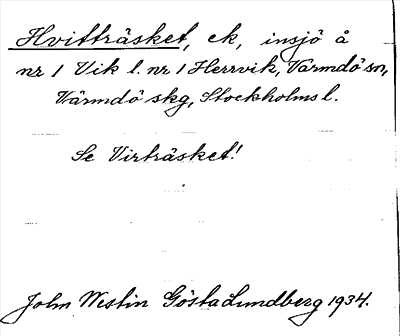 Hvitträsket, ek, insjö å
nr 1 Vik l. nr 1 Herrvik, Värmdö sn,
Värmdö skg, Stockholms l.
Se Virträsket!
John Westin Gösta Lundberg 1934.